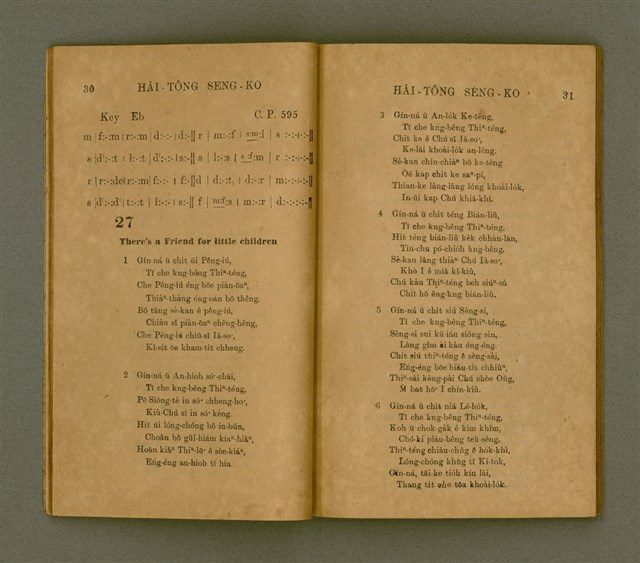 30 HÂI-TÔNG SENG-KO
Key Eb C. P. 595
27
There's a Friend for little children
1 Gín-ná ū chit ūi Pêng-iú,
Tī che kng-bêng Thiⁿ-téng,
Che Pêng-iú éng bōe piàn-ōaⁿ,
Thiàⁿ-thàng éng-oán bô thêng.
Bō tâng sè-kan ê pêng-iú,
Chiàu sî piàn-ōaⁿ chêng-hêng,
Che Pêng-iú chiū-sī Iâ-so͘,
Kì-sit ōe kham-tit chheng.
2 Gín-ná ū An-hioh só͘-chāi,
Tī che kng-bêng Thiⁿ-téng,
Pē Siōng-tè in só͘ chheng-ho͘,
Kiù-Chú sī in só͘ kèng.
Hit ūi lóng-chóng bô iu-būn,
Choân bô gûi-hiám kiaⁿ-hiâⁿ,
Hoān kiâⁿ Thiⁿ-lō͘ ê sòe-kiáⁿ,
Eńg-éng an-hioh tī hia.
HÂI-TÔNG SÈNG-KO 31
3 Gín-ná ū An-lo̍k Ke-têng,
Tī che kng-bêng Thiⁿ-téng,
Chit ke ê Chú sī Iâ-so͘,
Ke-lāi khoài-lo̍k an-lêng.
Sè-kan chin-chiàⁿ bô ke-têng
Ōe kap chit ke saⁿ-pí,
Thian-ke lâng-lâng lóng khoài-lo̍k,
In-ūi kap Chú khiā-khí.
4 Gín-ná ū chit têng Bián-liû,
Tī che kng-bêng Thiⁿ-téng,
Hit têng bián-liû ke̍k chhàn-lān,
Tìn-chu pó-chio̍h kng-bêng.
Sè-kan lâng thiàⁿ Chú Iâ-so͘,
Khò I ê miâ kî-kiû,
Chú kàu Thiⁿ-téng beh siúⁿ-sù
Chit hō êng-kng bián-liû.
5 Gín-ná ū chit siú Sèng-si,
Tī che kng-bêng Thiⁿ-téng,
Sèng-si sui kú iáu siông sin,
Lâng gîm ài kàu éng-éng.
Chit siú thiⁿ-téng ê sèng-sài,
Eng-éng bōe hiáu-tit chhiùⁿ,
Thiⁿ-sài kèng-pài Chú chòe Oông,
M̄ bat hō͘ I chín-kiù.
6 Gín-ná ū chit niá Lé-ho̍k,
Tī che kng-bêng Thiⁿ-téng,
Koh ū chok-ga̍k ê kim khîm,
Chó-kí piáu-bêng tek-sèng.
Thiⁿ-téng chiâu-chn̂g ê hok-khì,
Lóng-chóng khǹg tī Ki-tok,
Gín-ná, tāi-ke tio̍h kín lâi,
Thang tit che tōa khoài-lo̍k.